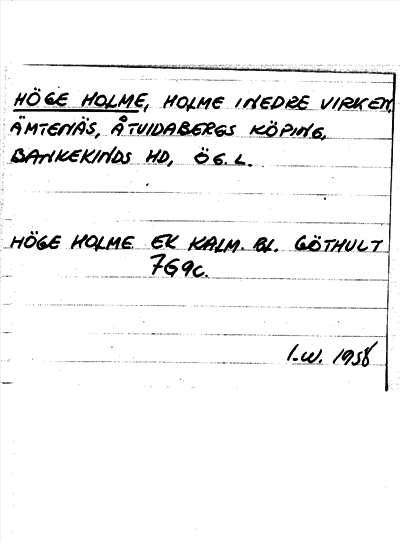 HÖGE HOLME, HOLME I NEDRE VIRKEN,
ÄMTENÄS, ÅTVIDABERGS KÖPING,
BANKEKINDS HD, ÖG. L.
HÖGE HOLME EK KALM. BL. GÖTHULT
7G9c.
I.W. 1958